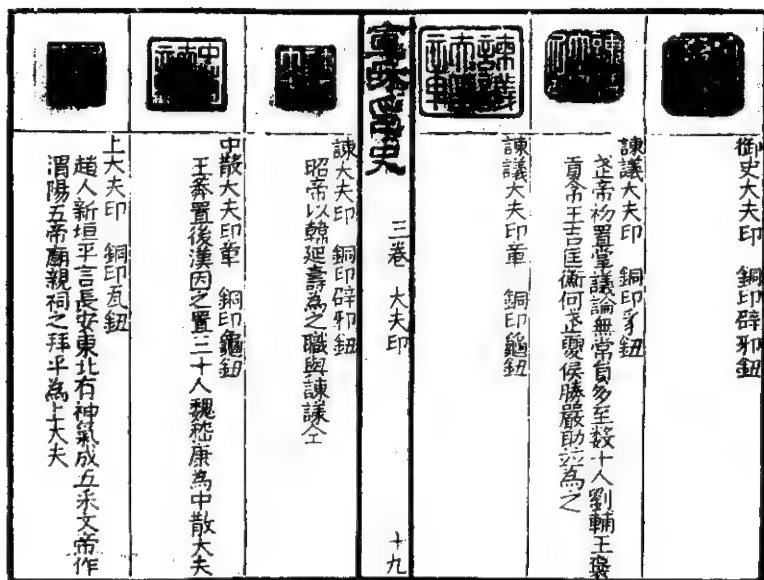 御史大夫印 銅印辟邪鈕
諫議大夫印 銅印豸鈕
武帝初置掌議論無常員多至数十人劉輔王褒
貢禹王吉匡衡何武夏侯勝嚴助並為之
諫議大夫印章 銅印龜鈕
宣和印史 三卷 大夫印 十九
諫大夫印 銅印辟邪鈕
昭帝以韓延壽為之職與諫議仝
中散大夫印章 銅印龜鈕
王莽置後漢因之置三十人魏嵇康為中散大夫
上大夫印 銅印瓦鈕
趙人新垣平言長安東北有神氣成五采文帝作
渭陽五帝廟親祠之拜平為上大夫